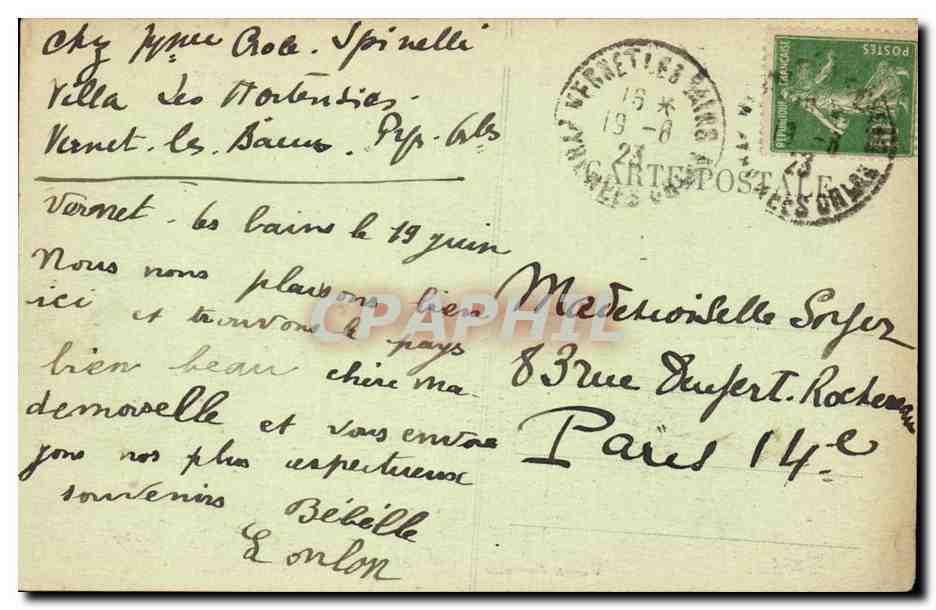 Villa Les Hortensias.
Vernet-les-Bains. Pyr-Orles
Vernet-les bains le 19 juin
Nous nous plaisons bien
ici et trouvons le pays
bien beau chère ma-
demoiselle et vous envoy
ons nos plus respectueux
souvenirs Bébelle
Loulou
VERNET LES BAINS
16 *
19 -6
23
CARTE POSTALE
POSTES
REPUBLIQUE FRANÇAISE
Mademoiselle
83 rue Denfert-Rochereau
Paris 14e
CPAPHIL